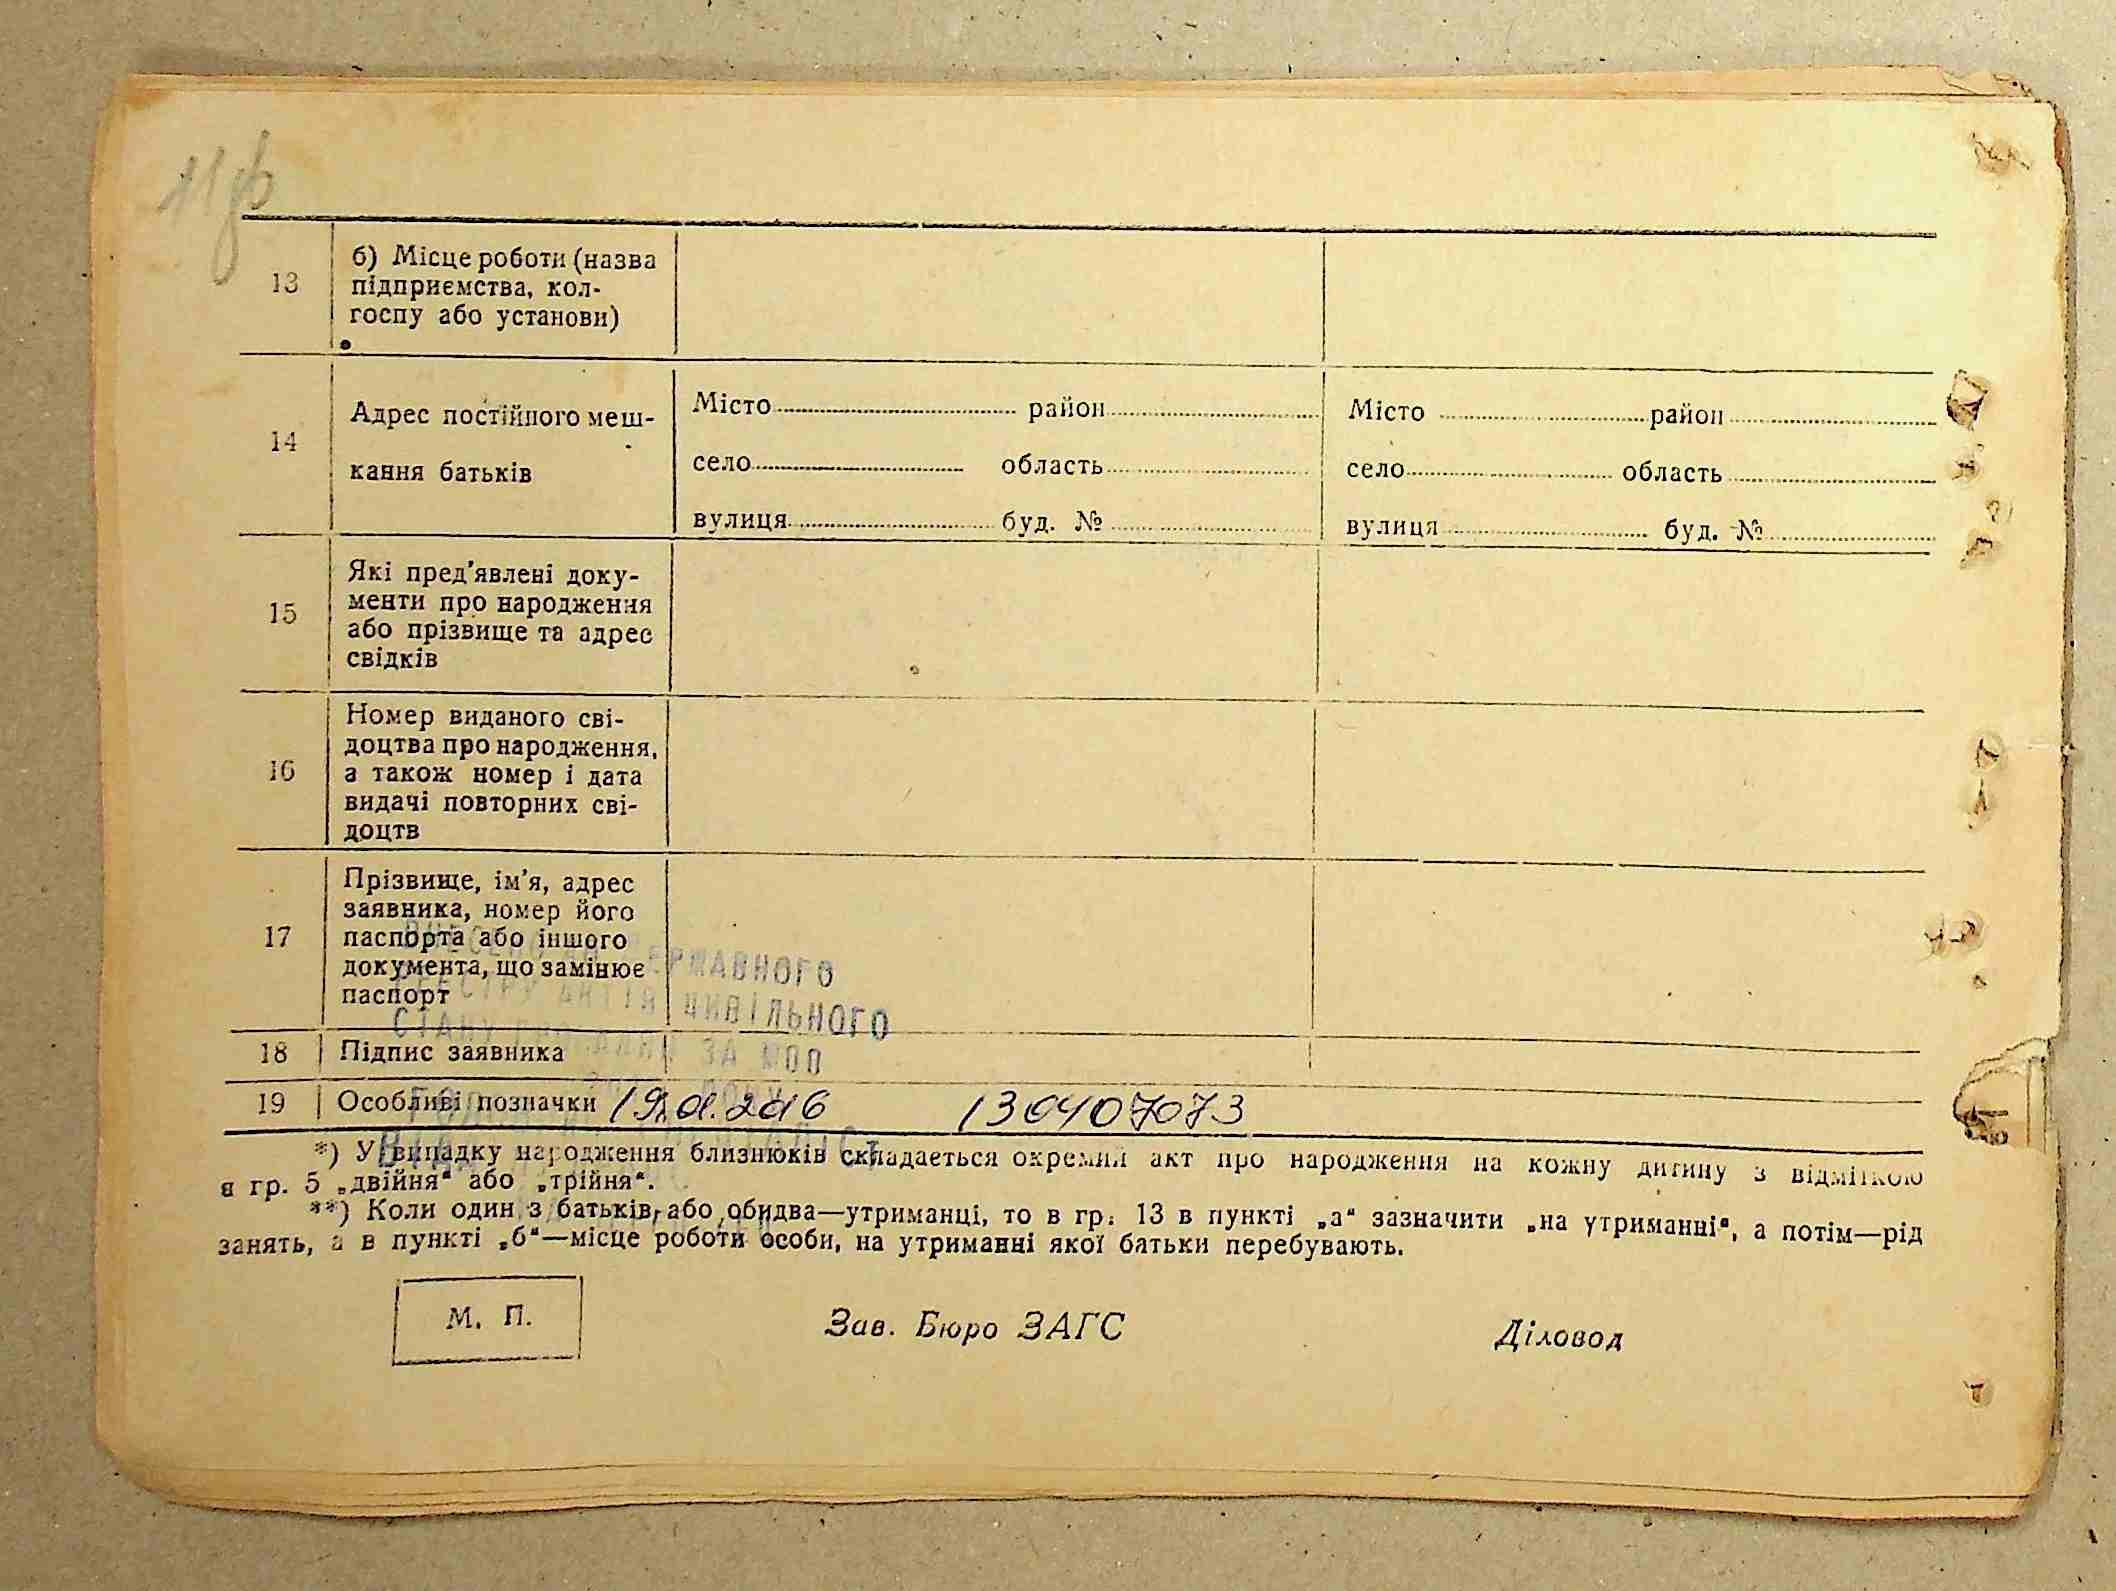 13
б) Місце роботи (назва
підприємства, кол-
госпу або установи)
14
Адрес постійного меш-
кання батьків
Місто район
село область
вулиця буд. №
Місто район
село область
вулиця буд. №
15
Які пред'явлені доку-
менти про народження
або прізвище та адрес
свідків
16
Номер виданого сві-
доцтва про народження,
а також номер і дата
видачі повторних сві-
доцтв
17
Прізвище, ім'я, адрес
заявника, номер його
паспорта або іншого
документа, що замінює
паспорт
ДЕРЖАВНОГО
РЕЄСТРУ АКТІВ ЦИВІЛЬНОГО
СТАНУ ГРОМАДЯН ЗА
18 Підпис заявника
19 Особливі позначки 19.01.2016 130407073
*) У випадку народження близнюків складається окремий акт про народження на кожну дитину з відміткою
в гр. 5 „двійня“ або „трійня“.
**) Коли один з батьків, або обидва—утриманці, то в гр. 13 в пункті „а“ зазначити „на утриманні“, а потім—рід
занять, а в пункті „б“—місце роботи особи, на утриманні якої батьки перебувають.
М. П.
Зав. Бюро ЗАГС
Діловод